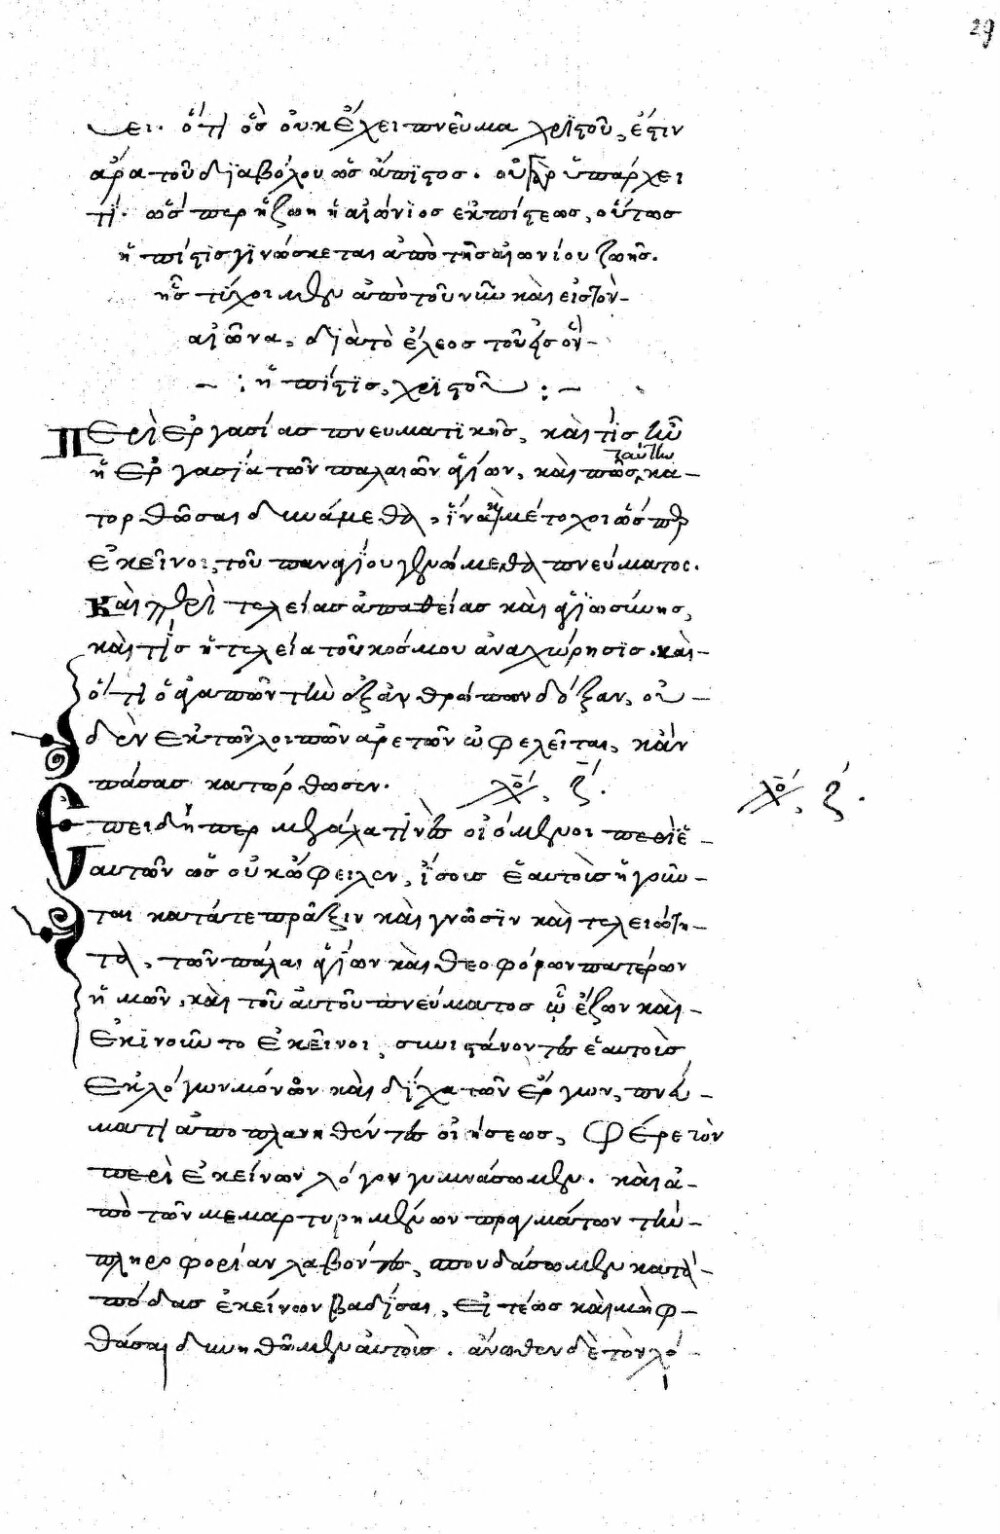 29
ει. ὅτι ὃς οὐκ ἔχει πνεῦμα χριστοῦ, ἔστιν
ἄρα τοῦ διαβόλου ὡς ἄπιστος. οὗ γὰρ ὑπάρχει
τί. ὥσπερ ἡ ζωὴ ἡ αἰώνιος ἐκ πίστεως, οὕτως
ἡ πίστις γινώσκεται ἀπὸ τῆς αἰωνίου ζωῆς.
ἧς τύχοιμεν ἀπὸ τοῦ νῦν καὶ εἰς τὸν
αἰῶνα, διὰ τὸ ἔλεος τοῦ
– : ἡ πίστις, χριστοῦ : –
Περὶ ἐργασίας πνευματικῆς, καὶ τίς ἦν
ταύτην
ἡ ἐργασία τῶν παλαιῶν ἁγίων, καὶ πῶς κα-
τορθῶσαι δυνάμεθα, ἵνα μέτοχοι ὥσπερ
ἐκεῖνοι, τοῦ παναγίου γενώμεθα πνεύματος.
Καὶ περὶ τελείας ἀπαθείας καὶ ἁγιωσύνης,
καὶ τίς ἡ τελεία τοῦ κόσμου ἀναχώρησις. καὶ-
ὅτι ὁ ἀγαπῶν τὴν ἐξ ἀνθρώπων δόξαν, οὐ-
δὲν ἐκ τῶν λοιπῶν ἀρετῶν ὠφελεῖται, κἂν
πάσας κατώρθωσεν. λό, ζ.
λό, ζ.
Ἐπειδήπερ μεγάλα τινὲς οἰόμενοι περὶ ἑ-
αυτῶν ὡς οὐκ ὤφειλον, ἴσους ἑαυτοὺς ἡγοῦν-
ται κατά τε πρᾶξιν καὶ γνῶσιν καὶ τελειότη-
τα, τῶν πάλαι ἁγίων καὶ θεοφόρων πατέρων
ἡμῶν, καὶ τοῦ αὐτοῦ πνεύματος ᾧ ἔζων καὶ-
ἐκινοῦντο ἐκεῖνοι, συνιστάνοντες ἑαυτοὺς
ἐκ λόγων μόνων καὶ δίχα τῶν ἔργων, πνεύ-
ματι ἀποπλανηθέντες οἰήσεως, φέρε τὸν
περὶ ἐκείνων λόγον γυμνάσωμεν. καὶ ἀ-
πὸ τῶν μεμαρτυρημένων πραγμάτων τὴν-
πληροφορίαν λαβόντες, σπουδάσωμεν κατὰ-
πόδας ἐκείνων βαδίσαι, εἰ τέως καὶ μὴ φ-
θάσαι δυνηθῶμεν αὐτούς. ἄνωθεν δὲ τὸν λό-